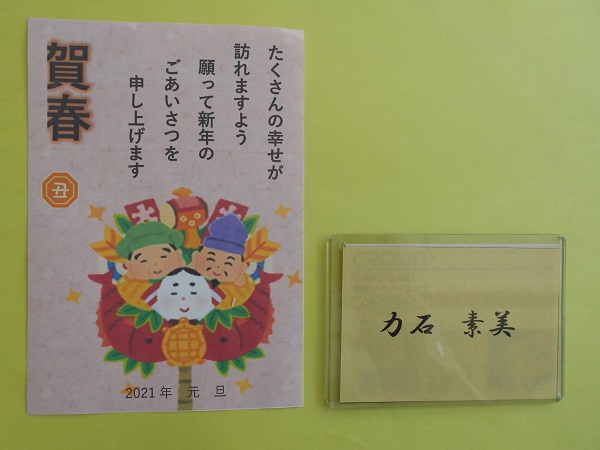 賀春
丑
たくさんの幸せが
訪れますよう
願って新年の
ごあいさつを
申し上げます
2021年 元 旦
力石 素美